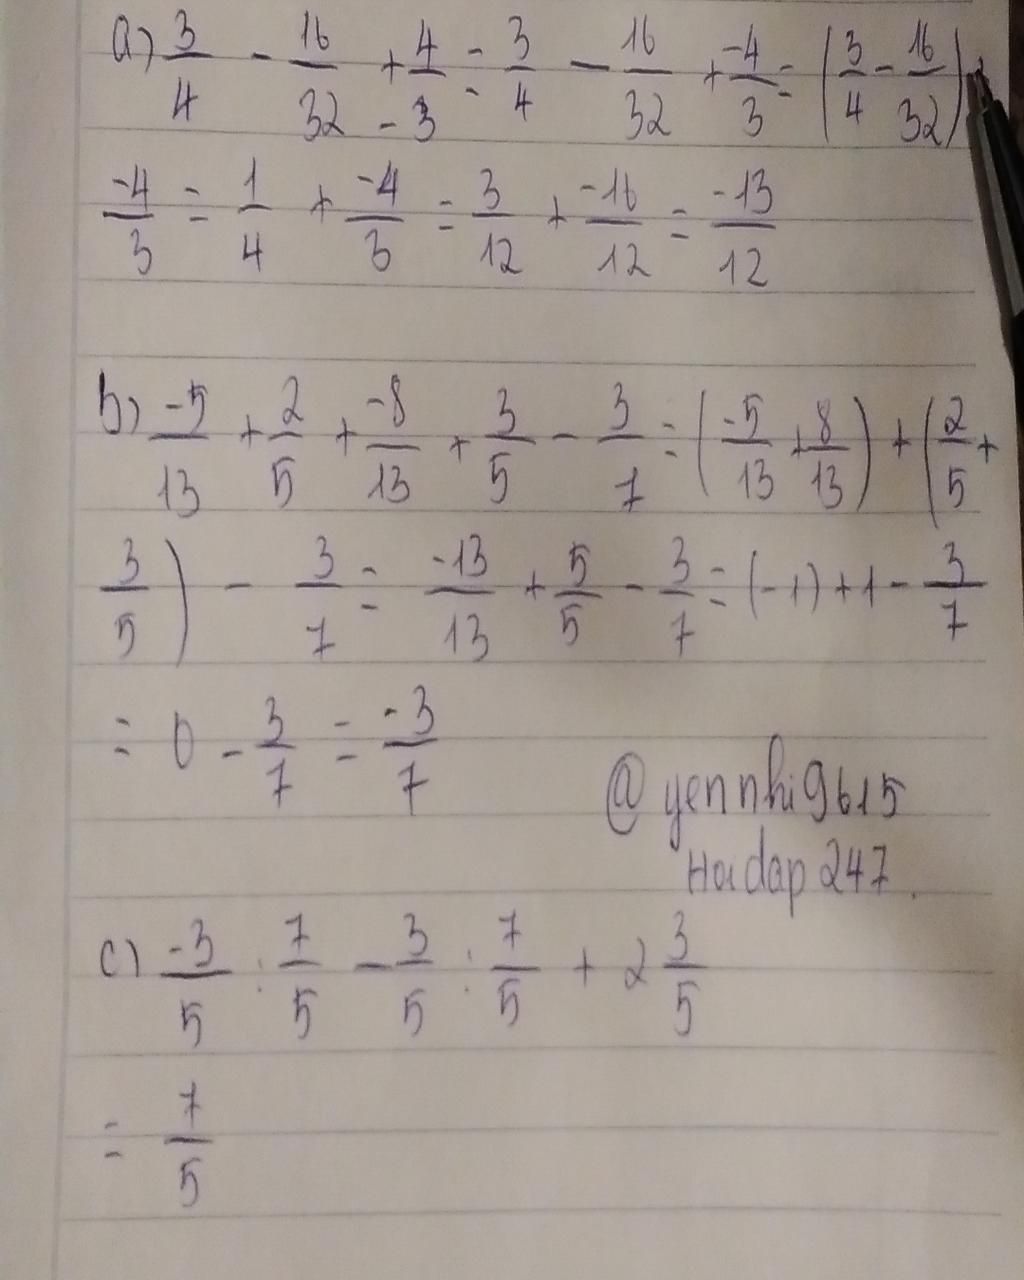 a) 3/4 - 16/32 + 4/-3 = 3/4 - 16/32 + -4/3 = (3/4 - 16/32) +
-4/3 = 1/4 + -4/3 = 3/12 + -16/12 = -13/12
b) -5/13 + 2/5 + -8/13 + 3/5 - 3/7 = (-5/13 + 8/13) + (2/5 +
3/5) - 3/7 = -13/13 + 5/5 - 3/7 = (-1) + 1 - 3/7
= 0 - 3/7 = -3/7
@yennhi9615
Hoidap247.
c) -3/5 : 7/5 - 3/5 : 7/5 + 2 3/5
= 7/5